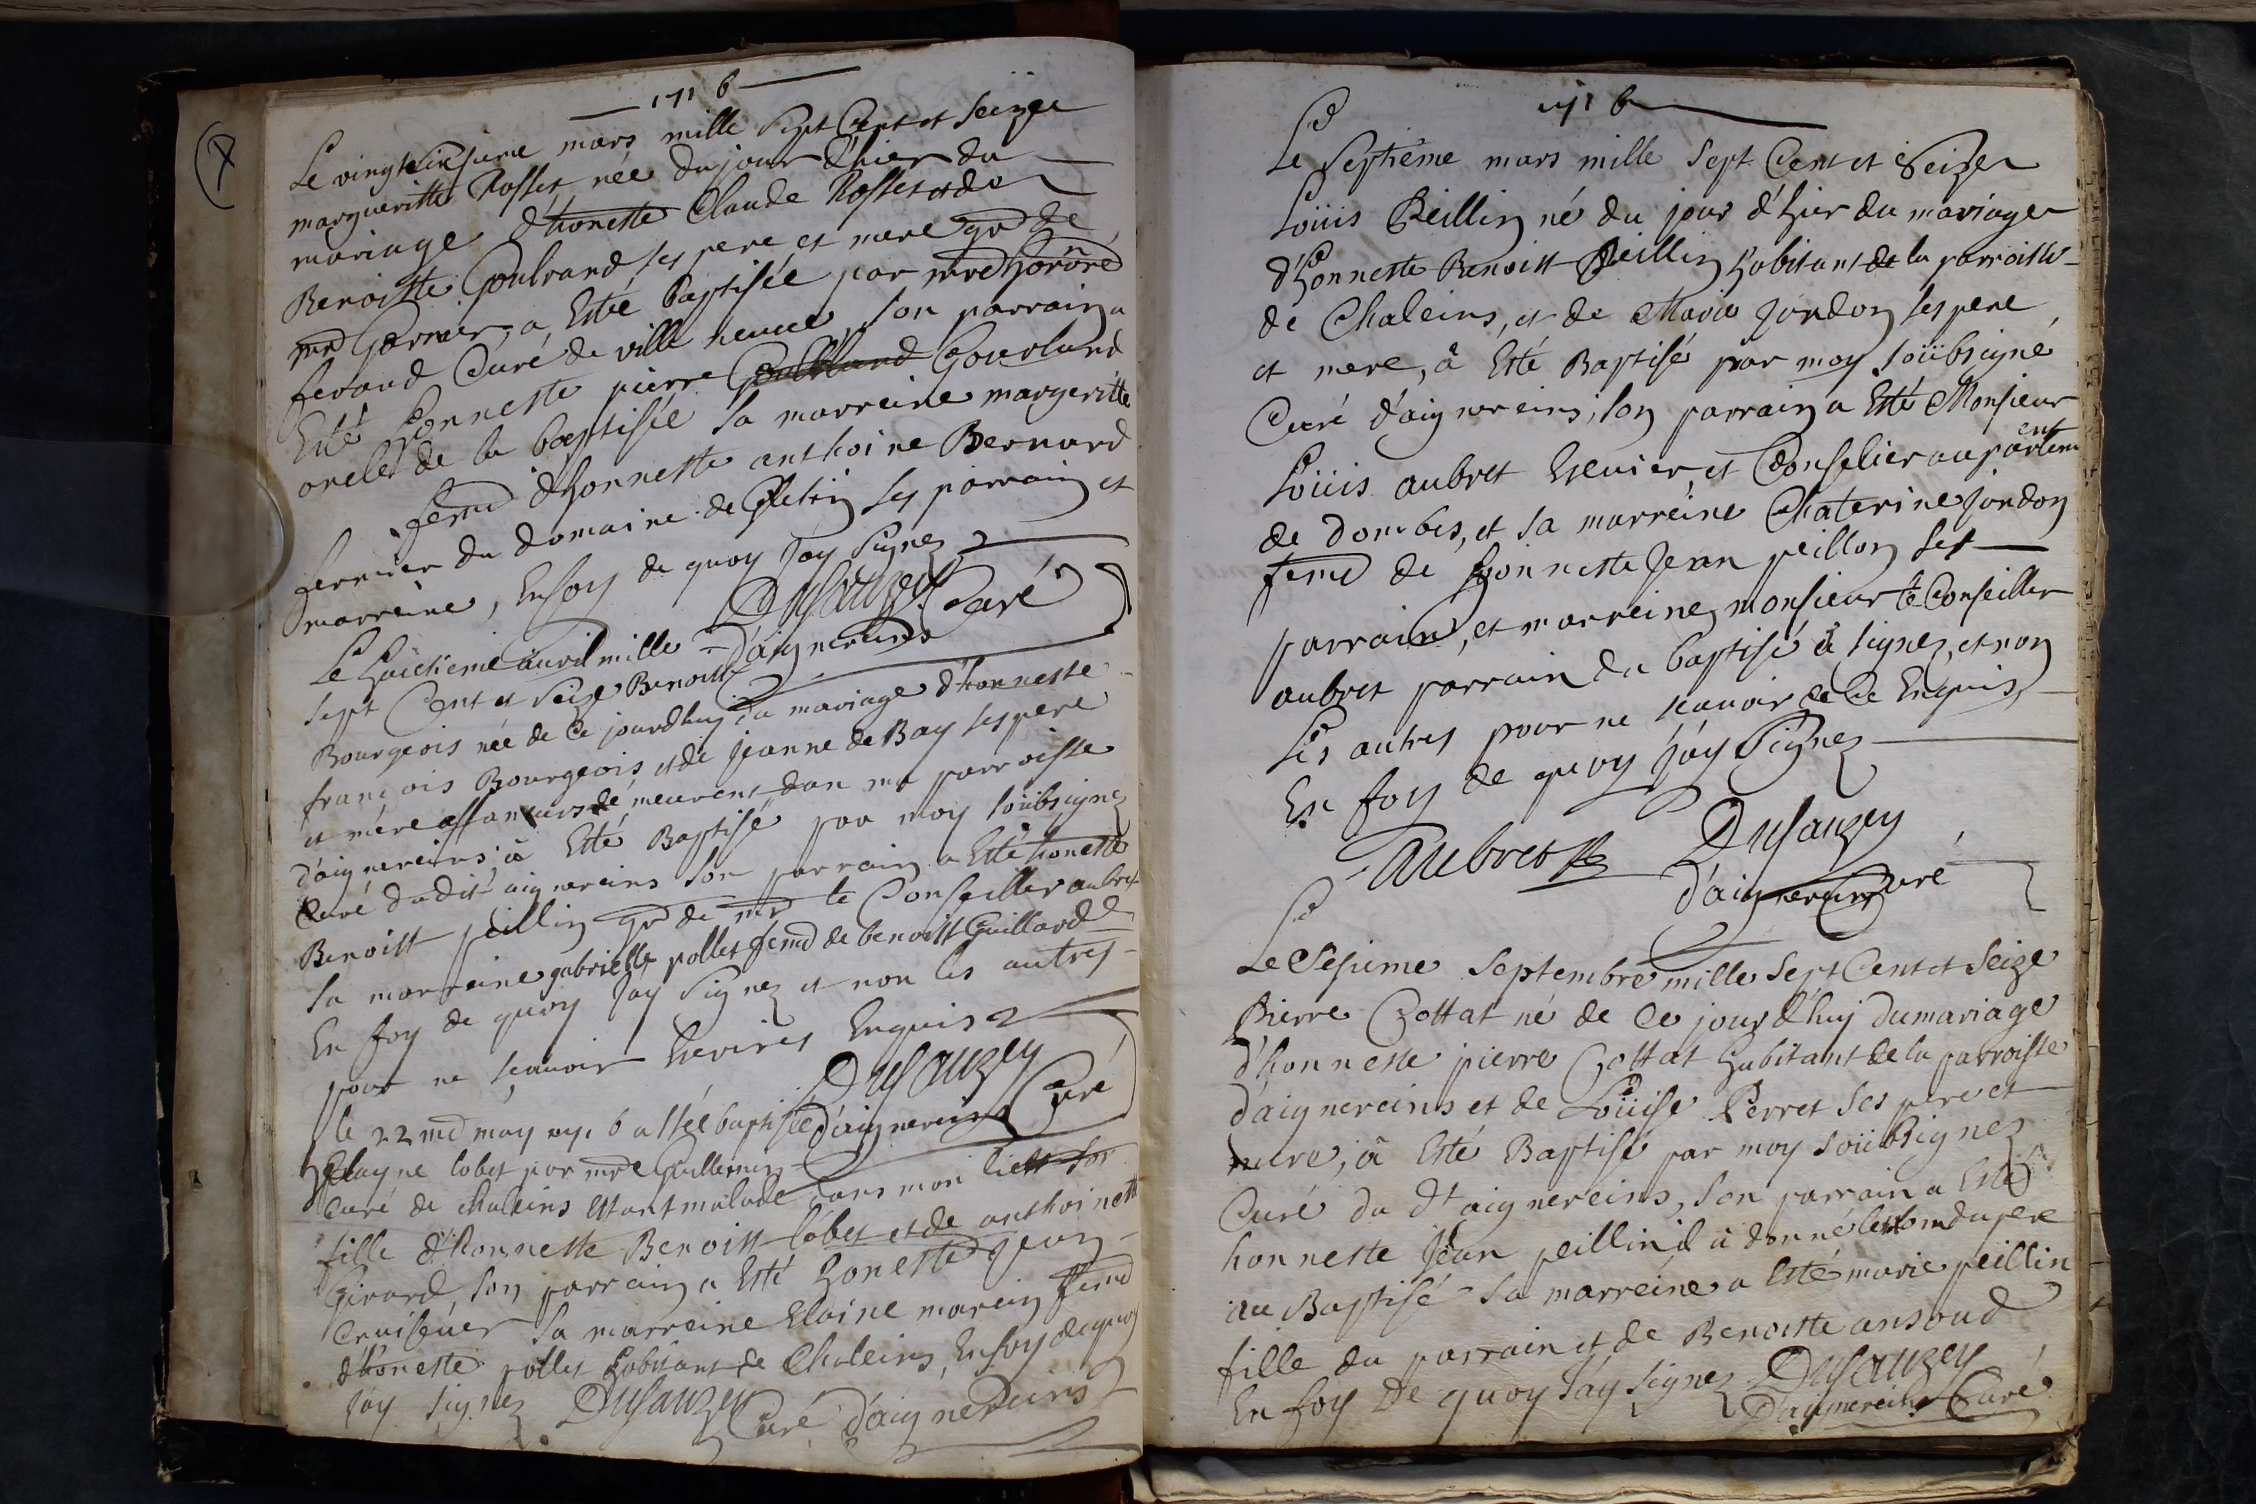 1716
Le vingt sixsieme mars mille Sept Cent et Seize
margueritte Rosset née du jour d'hier du
mariage d'honeste Claude Rosset et de
Benoiste Goulrand ses pere et mere gr de
mr garnier, a Esté Baptisée par mre honoré
feraud Curé de ville neuve, son parrain a
Esté honneste pierre Gourland
oncle de la baptisée sa marreine margeritte
feme d'honneste anthoine Bernard
fermier du domaine de ses parrain et
marreine, En foy de quoy jay Signez
Dusauzey Curé
d'aignereins
Le huictieme auvril mille
sept Cent et Seize Benoiste
Bourgeois née de Ce jourdhuy du mariage d'honneste
françois Bourgeois et de Jeanne de Bay ses pere
et mere affaneurs demeurent dan ma parroisse
d'aignereins, à Esté Baptisé par moy soübsignez
Curé dudit aignereins son parrain a Esté honeste
Benoist peillin gr de mr le Conseiller aubret
sa marreine gabrielle pollet feme de benoist Guillard
En foy de quoy Jay Signez et non les autres
pour ne sçavoir Enquis
Dusauzey
d'aignereins Curé
le 22me may 1716 a esté baptisée
Elayne lobet par mre Guillermin
Curé de chaleins estant malade dans mon lict
fille d'honneste Benoist lobet et de anthoinette
Girard, son parrain a Esté honeste Jean
sa marreine Elaine marein feme
d'honeste pollet habitant de Chaleins, En foy de quoy
Jay signez Dusauzey
Curé d'aignereins
1716
Le Septiéme mars mille Sept Cent et Seize
Loüis Peillin né du jour d'hier du mariage
d'honneste Benoist Peillin habitant de la parroisse
de Chaleins, et de Marie Jordon ses pere
et mere, à Esté Baptisé par moy soübsigné
Curé d'aignereins, son parrain a Esté Monsieur
Loüis aubret Escuier, et Conselier au parlement
de dombes, et sa marreine Chaterine Jordon
feme de honneste Jean peillon ses
parrain, et marreine, monsieur le Conseiller
aubret parrain du baptisé à signez, et non
Les autres pour ne sçavoir de Ce Enquis
En foy de quoy Jáy Signez
Aubret
Dusauzey
d'aignereins Curé
Le Sesieme Septembre mille Sept Cent et Seize
Pierre Cottat né de Ce jourd'huy du mariage
d'honneste pierre Cottat habitant de la parroisse
d'aignereins et de Loüise Perret ses pere et
mere, à Esté Baptisé par moy soübsignez
Curé du dt aignereins, son parrain a Esté
honneste Jean peillin il à donné le nom du pere
au Baptisé Sa marreine a Esté marie peillin
fille du parrain et de Benoiste ansoud
En foy de quoy Jáy signez Dusauzey
D'aignereins Curé